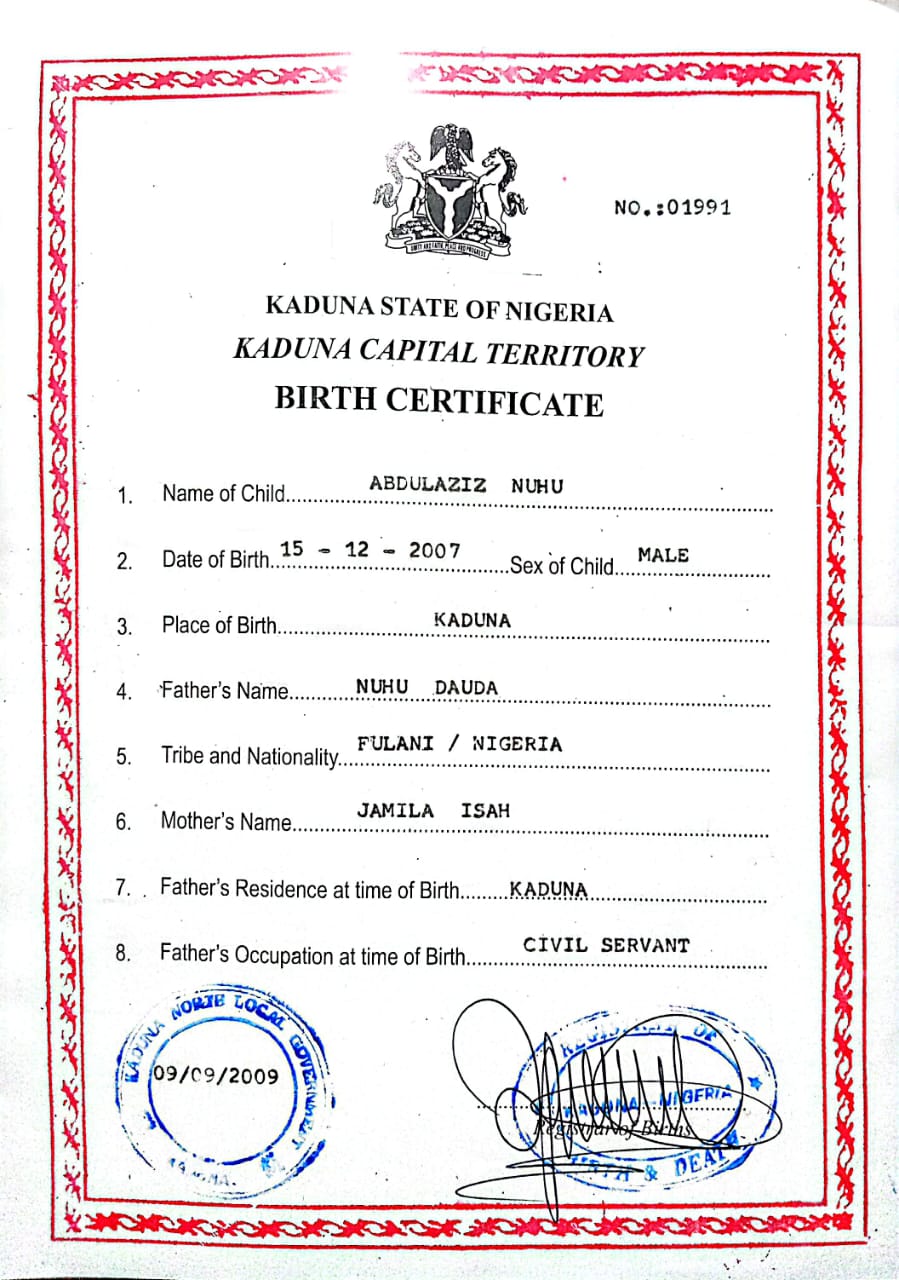 NO.:01991
UNITY AND FAITH, PEACE AND PROGRESS
KADUNA STATE OF NIGERIA
KADUNA CAPITAL TERRITORY
BIRTH CERTIFICATE
1. Name of Child ABDULAZIZ NUHU
2. Date of Birth 15 - 12 - 2007 Sex of Child MALE
3. Place of Birth KADUNA
4. Father's Name NUHU DAUDA
5. Tribe and Nationality FULANI / NIGERIA
6. Mother's Name JAMILA ISAH
7. Father's Residence at time of Birth KADUNA
8. Father's Occupation at time of Birth CIVIL SERVANT
KADUNA LOCAL GOVERNMENT
09/09/2009
OF
KADUNA - NIGERIA
Registrar of Births
BIRTH & DEATH